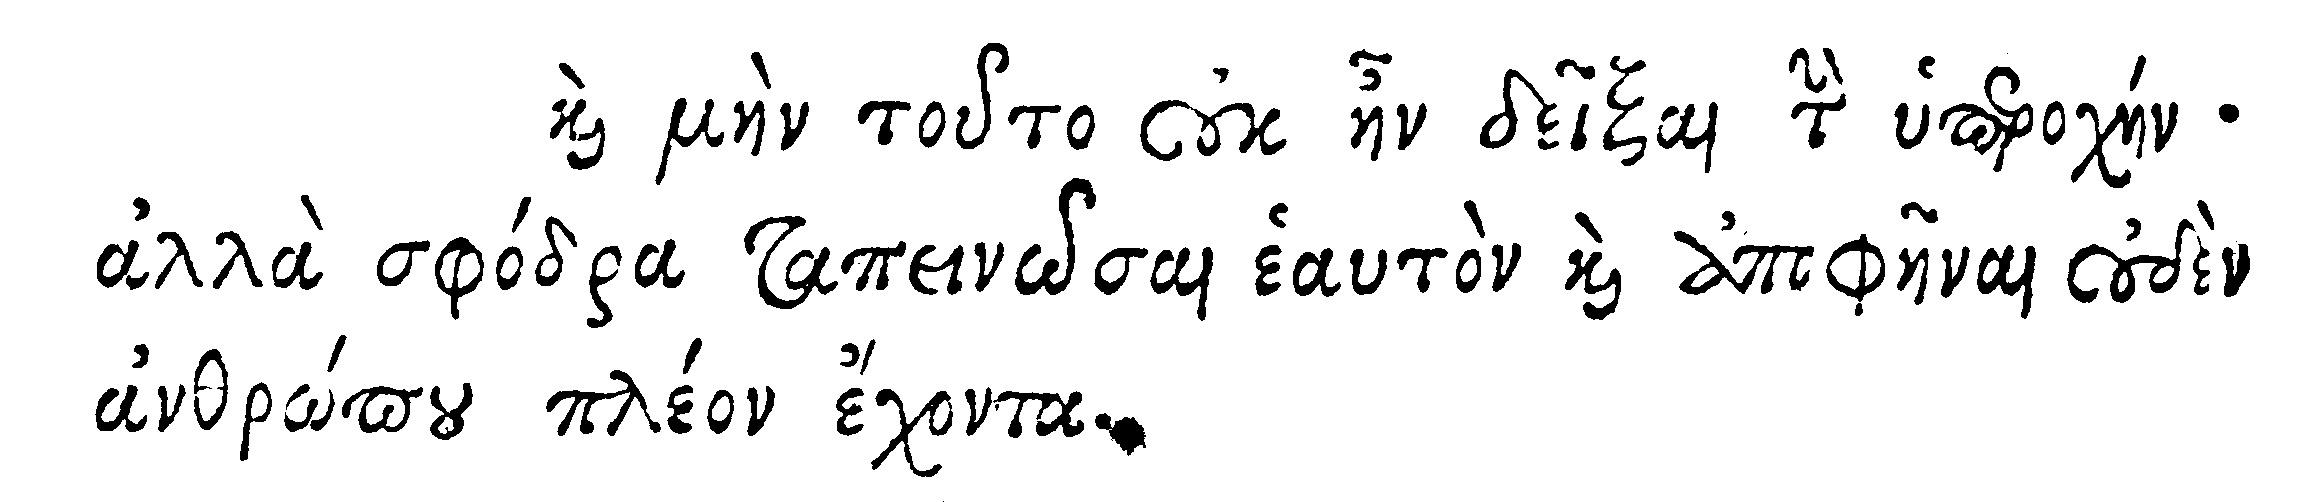 καὶ μὴν τοῦτο οὐκ ἦν δεῖξαι τὴν ὑπεροχήν·
ἀλλὰ σφόδρα ταπεινῶσαι ἑαυτὸν καὶ ἀποφῆναι οὐδὲν
ἀνθρώπου πλέον ἔχοντα.